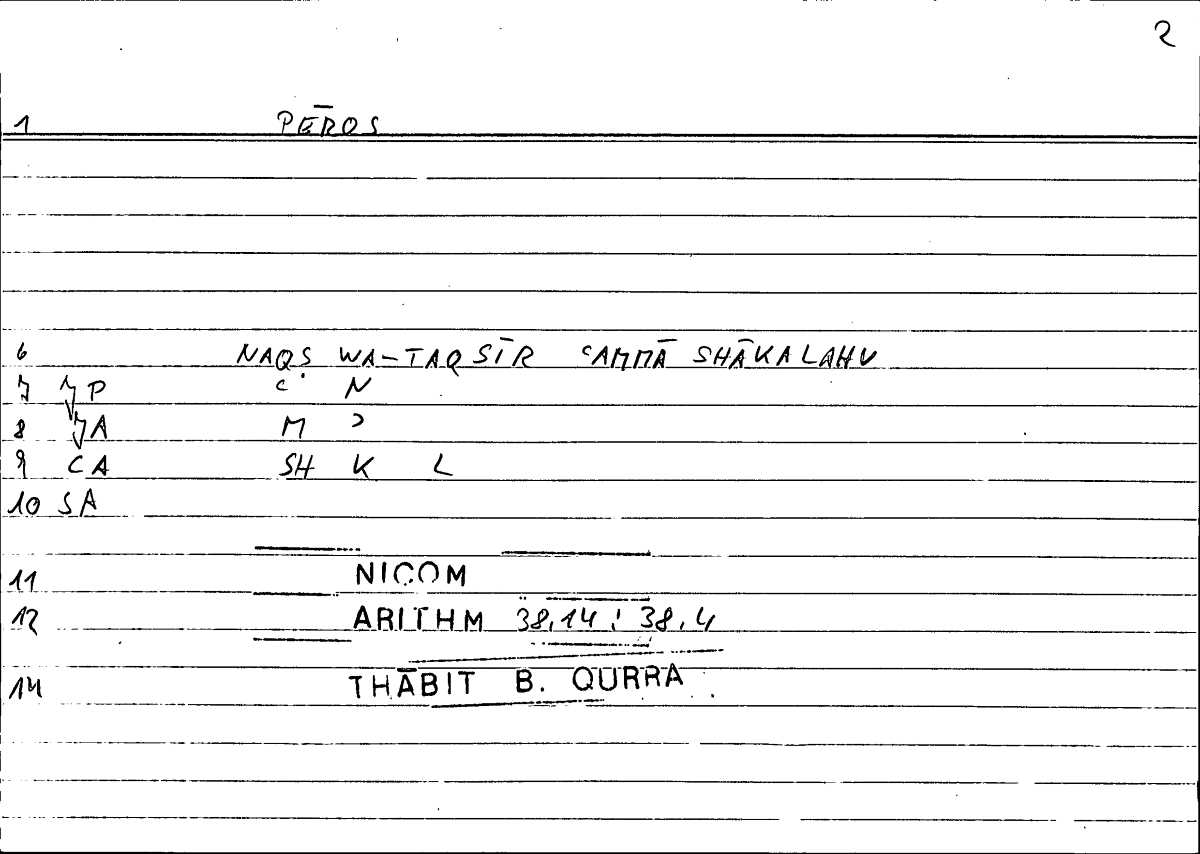 2
1 PĒROS
6 NAQS WA-TAQSĪR ʿAMMĀ SHĀKALAHU
7 P ʿ N
8 A M ʾ
9 CA SH K L
10 SA
11 NICOM
12 ARITHM 38,14 : 38,4
14 THĀBIT B. QURRA